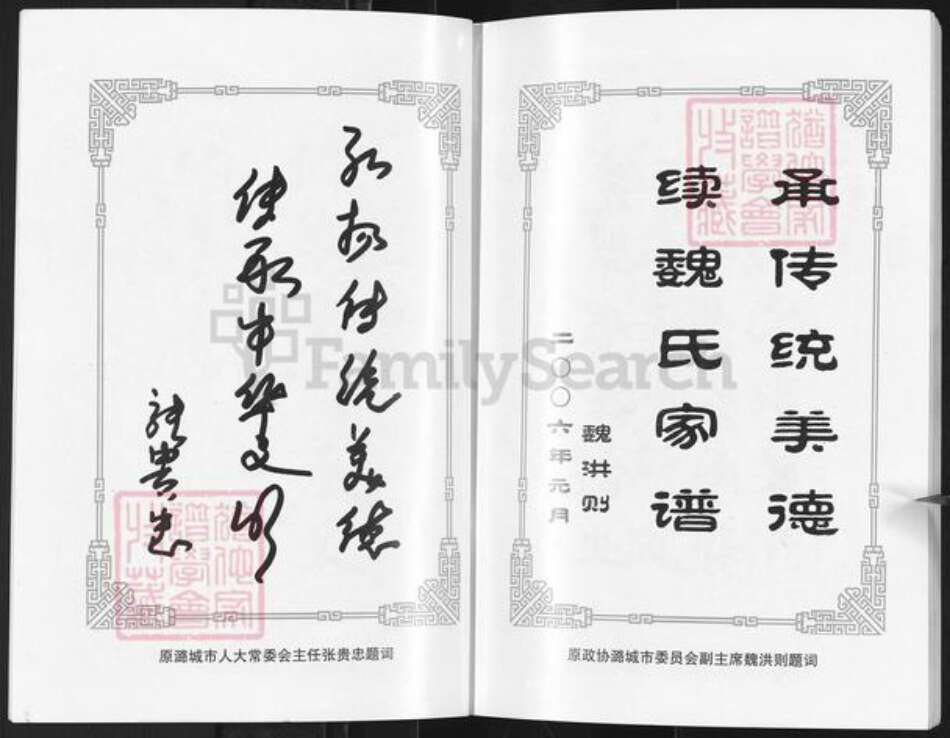 承传统美德
续魏氏家谱
魏洪则
二〇〇六年元月
原政协潞城市委员会副主席魏洪则题词
弘扬传统美德
传承中华文明
张贵忠
原潞城市人大常委会主任张贵忠题词
FamilySearch